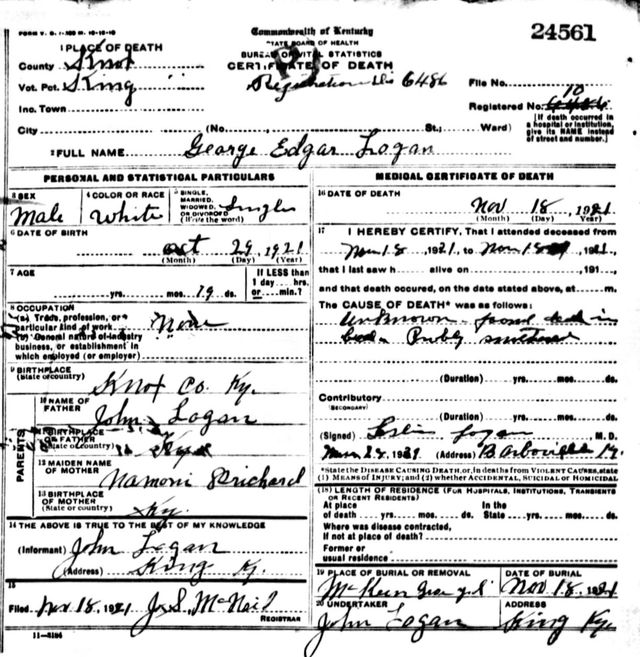 FORM V. S. 1-
Commonwealth of Kentucky
24561
STATE BOARD OF HEALTH
BUREAU OF VITAL STATISTICS
CERTIFICATE OF DEATH
1 PLACE OF DEATH
County Knox
Vot. Pct. King
Inc. Town
Registration Dis 6486
File No.
Registered No. 10
[If death occurred in a hospital or institution, give its NAME instead of street and number.]
City (No. St.; Ward)
2 FULL NAME George Edgar Logan
PERSONAL AND STATISTICAL PARTICULARS
3 SEX Male
4 COLOR OR RACE White
5 SINGLE, MARRIED, WIDOWED, OR DIVORCED (Write the word) Single
6 DATE OF BIRTH
Oct 29, 1921
(Month) (Day) (Year)
7 AGE
yrs. mos. 19 ds.
If LESS than 1 day hrs. or min.?
8 OCCUPATION
(a) Trade, profession, or particular kind of work None
(b) General nature of industry business, or establishment in which employed (or employer)
9 BIRTHPLACE
(State or country) Knox Co. Ky.
PARENTS
10 NAME OF FATHER John Logan
11 BIRTHPLACE OF FATHER
(State or country) Ky
12 MAIDEN NAME OF MOTHER Namoni Prichard
13 BIRTHPLACE OF MOTHER
(State or country) Ky.
14 THE ABOVE IS TRUE TO THE BEST OF MY KNOWLEDGE
(Informant) John Logan
(Address) King Ky.
15
Filed Nov 18, 1921 J. S. McNeil
REGISTRAR
11-3184
MEDICAL CERTIFICATE OF DEATH
16 DATE OF DEATH
Nov 18, 1921
(Month) (Day) (Year)
17 I HEREBY CERTIFY, That I attended deceased from
Nov 18, 1921, to Nov 18, 1921,
that I last saw h alive on 191
and that death occured, on the date stated above, at m.
The CAUSE OF DEATH* was as follows:
Unknown - found dead in
bed - Probly smothered
(Duration) yrs. mos. ds.
Contributory
(SECONDARY)
(Duration) yrs. mos. ds.
(Signed) Leslie Logan, M. D.
1921 (Address) Barbourville Ky.
*State the DISEASE CAUSING DEATH, or, in deaths from VIOLENT CAUSES, state
(1) MEANS OF INJURY; and (2) whether ACCIDENTAL, SUICIDAL or HOMICIDAL
(18) LENGTH OF RESIDENCE (FOR HOSPITALS, INSTITUTIONS, TRANSIENTS OR RECENT RESIDENTS)
At place of death yrs. mos. ds. In the State yrs. mos. ds.
Where was disease contracted,
If not at place of death?
Former or usual residence
19 PLACE OF BURIAL OR REMOVAL DATE OF BURIAL
Nov 18, 1921
20 UNDERTAKER ADDRESS
John Logan King Ky.